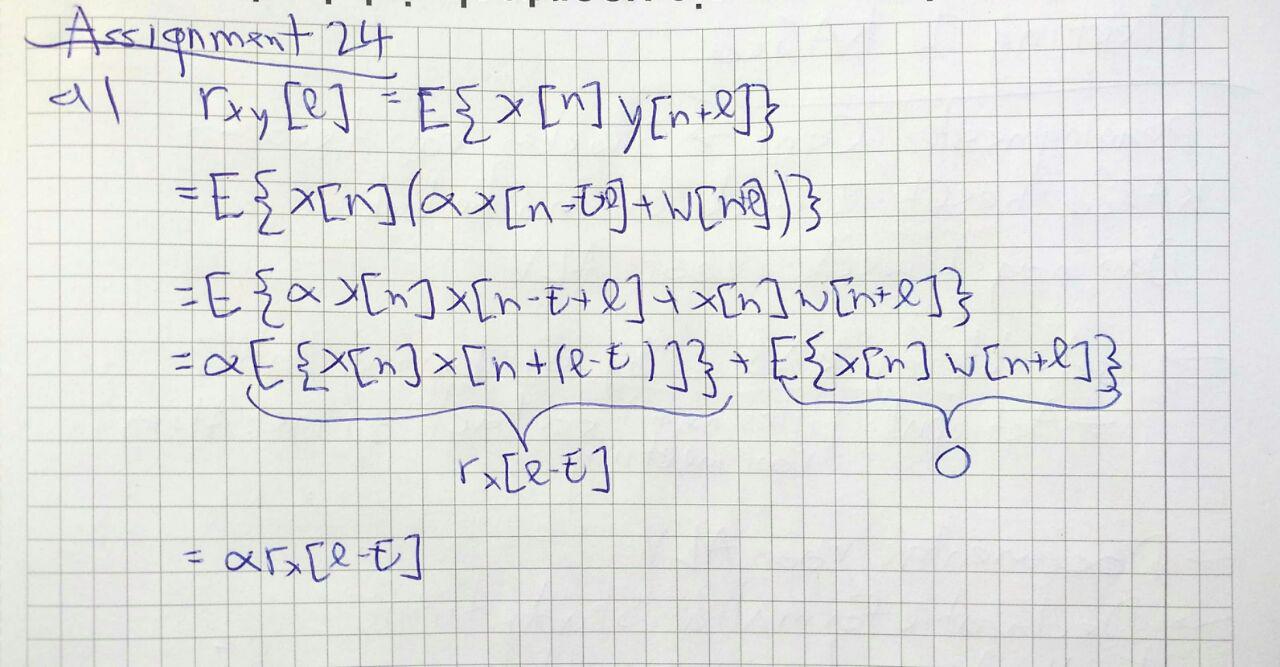 Assignment 24
a) r_xy[l] = E{x[n] y[n+l]}
= E{x[n](αx[n-τ+l]+w[n+l])}
= E{αx[n]x[n-τ+l]+x[n]w[n+l]}
= αE{x[n]x[n+(l-τ)]}+E{x[n]w[n+l]}
r_x[l-τ] 0
= αr_x[l-τ]